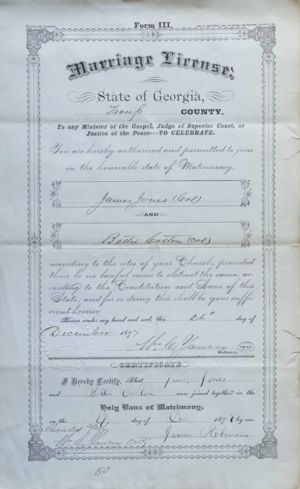 Form III.
Marriage License.
State of Georgia,
Troup COUNTY.
To any Minister of the Gospel, Judge of Superior Court, or
Justice of the Peace—TO CELEBRATE.
You are hereby authorized and permitted to join
in the honorable state of Matrimony,
James Jones (Col)
AND
Bettie Cotton (Col)
according to the rites of your Church, provided
there be no lawful cause to obstruct the same, ac-
cording to the Constitution and Laws of this
State, and for so doing this shall be your suffi-
cient license.
Given under my hand and seal, this 26th day of
December 187
Wm C Yancey
Ordinary.
CERTIFICATE
I Hereby Certify, That James Jones
and Bettie Cotton were joined together in the
Holy Bans of Matrimony,
on the day of 187 by me.
James
Wm C Yancey Ordy